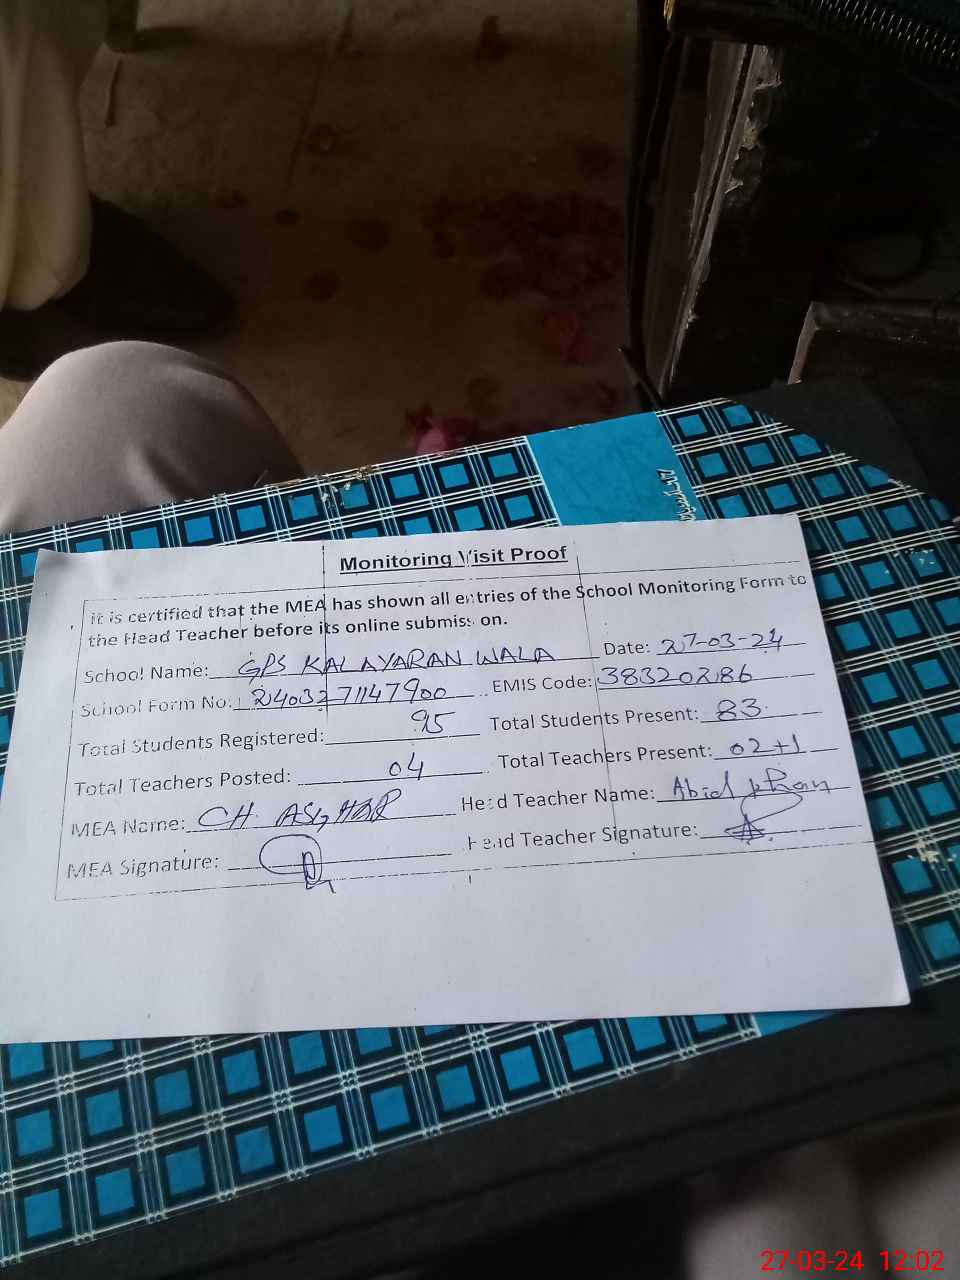 Monitoring Visit Proof
it is certified that the MEA has shown all entries of the School Monitoring Form to
the Head Teacher before its online submission.
School Name: GPS KALAYARAN WALA Date: 27-03-24
School Form No: 240327147900 EMIS Code: 38320286
Total Students Registered: 95 Total Students Present: 83
Total Teachers Posted: 04 Total Teachers Present: 02+1
MEA Name: CH. ASGHAR Head Teacher Name: Abid Khan
MEA Signature: Head Teacher Signature:
27-03-24 12:02